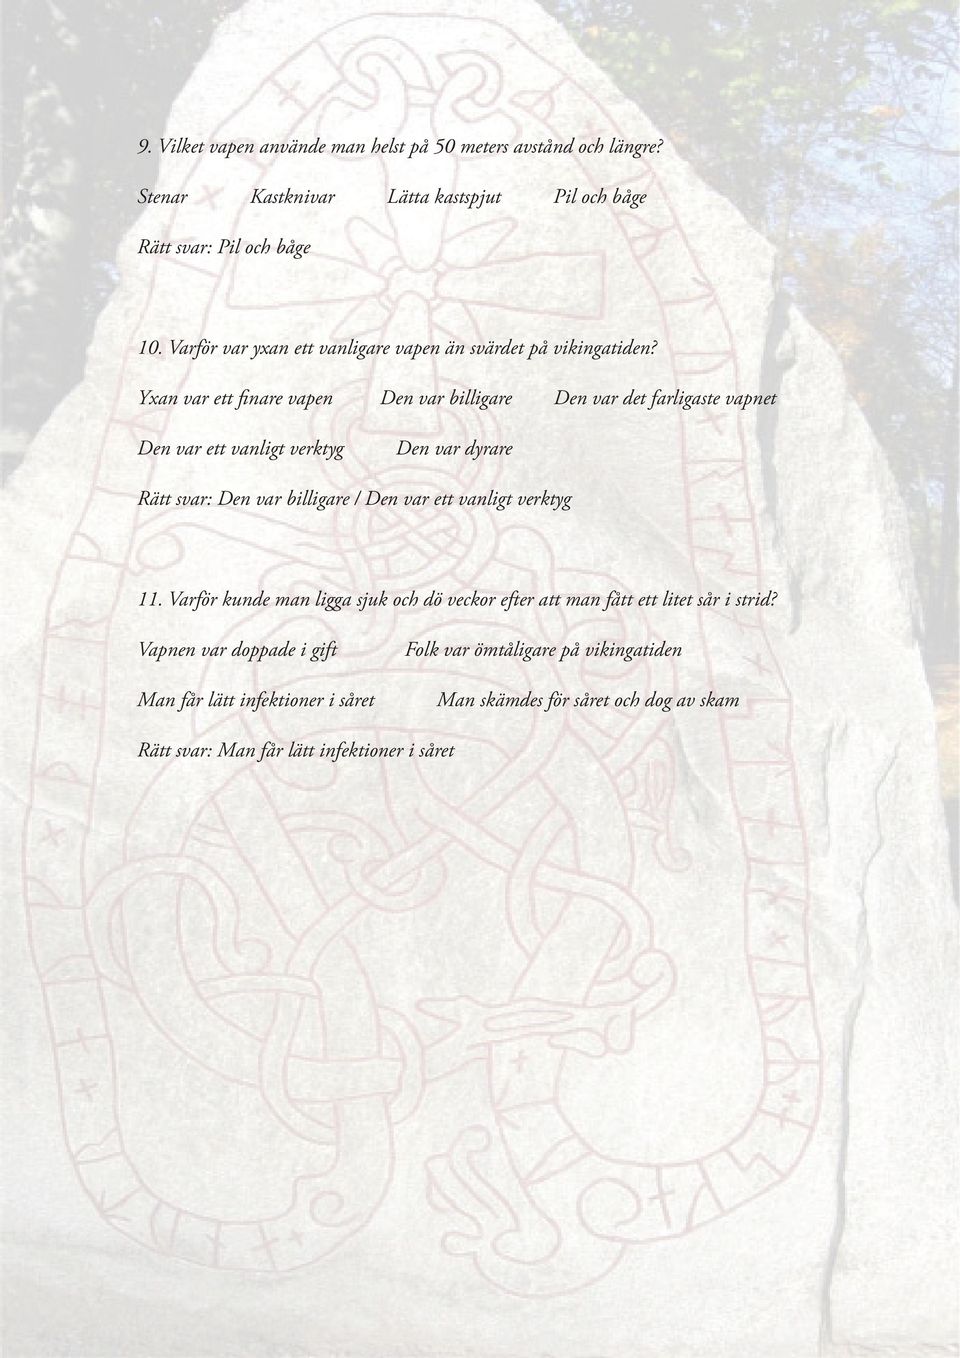 9. Vilket vapen använde man helst på 50 meters avstånd och längre?
Stenar Kastknivar Lätta kastspjut Pil och båge
Rätt svar: Pil och båge
10. Varför var yxan ett vanligare vapen än svärdet på vikingatiden?
Yxan var ett finare vapen Den var billigare Den var det farligaste vapnet
Den var ett vanligt verktyg Den var dyrare
Rätt svar: Den var billigare / Den var ett vanligt verktyg
11. Varför kunde man ligga sjuk och dö veckor efter att man fått ett litet sår i strid?
Vapnen var doppade i gift Folk var ömtåligare på vikingatiden
Man får lätt infektioner i såret Man skämdes för såret och dog av skam
Rätt svar: Man får lätt infektioner i såret